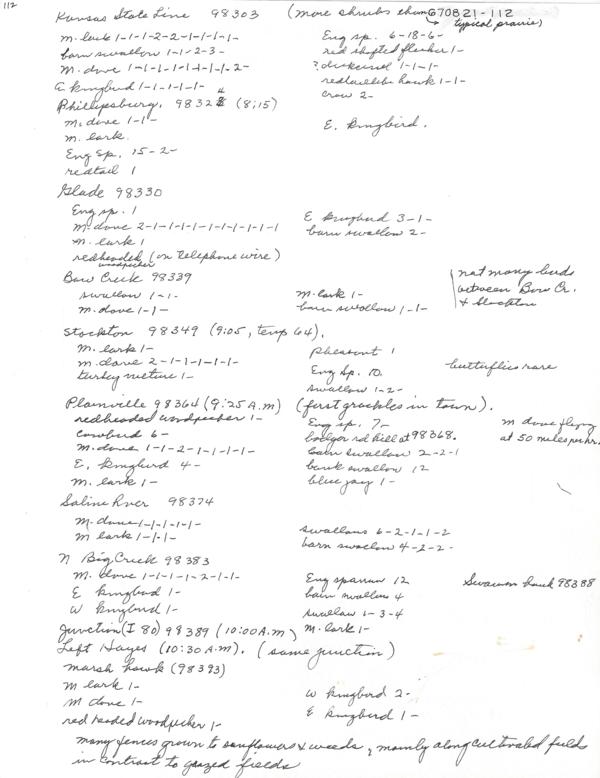 112
Kansas State Line 98303 (more shrubs than 670821-112
typical prairie)
m. lark 1-1-1-2-2-1-1-1-1-
barn swallow 1-1-2-3-
M. dove 1-1-1-1-1-1-1-1-2-
E kingbird 1-1-1-1-1-
Eng sp. 6-18-6-
red shafted flicker 1-
? dickcissel 1-1-1-
redtailed hawk 1-1-
crow 2-
Phillipsburg. 98324 (8:15)
m. dove 1-1-
m. lark.
Eng Sp. 15-2-
redtail 1
E. kingbird.
Glade 98330
Eng sp. 1
m. dove 2-1-1-1-1-1-1-1-1-1
m. lark 1
redheaded woodpecker (on telephone wire)
E kingbird 3-1-
barn swallow 2-
Bow Creek 98339
swallow 1-1-
m. dove 1-1-
m. lark 1-
barn swallow 1-1-
not many birds
between Bow Cr.
& Stockton
Stockton 98349 (9:05, temp 64).
m. lark 1-
m. dove 2-1-1-1-1-1-
turkey vulture 1-
pheasant 1
Eng Sp. 10.
swallow 1-2-
butterflies rare
Plainville 98364 (9:25 A.M) (first grackles in town).
redheaded woodpecker 1-
cowbird 6-
m. dove 1-1-2-1-1-1-1-
E. kingbird 4-
m. lark 1-
Eng sp. 7-
badger rd kill at 98368.
barn swallow 2-2-1
bank swallow 12
blue jay 1-
m dove flying
at 50 miles per hr.
Saline River 98374
m. dove 1-1-1-1-1-
m lark 1-1-1-
swallows 6-2-1-1-2
barn swallow 4-2-2-
N Big Creek 98383
m. dove 1-1-1-1-2-1-1-
E kingbird 1-
W kingbird 1-
Eng sparrow 12
barn swallow 4
swallow 1-3-4
m. lark 1-
Swainson hawk 98388
Junction (I 80) 98389 (10:00 A.m)
Left Hayes (10:30 A.M). (same junction)
marsh hawk (98393)
m lark 1-
m dove 1-
red headed woodpecker 1-
W kingbird 2-
E kingbird 1-
many fences grown to sunflowers & weeds, mainly along cultivated fields
in contrast to grazed fields